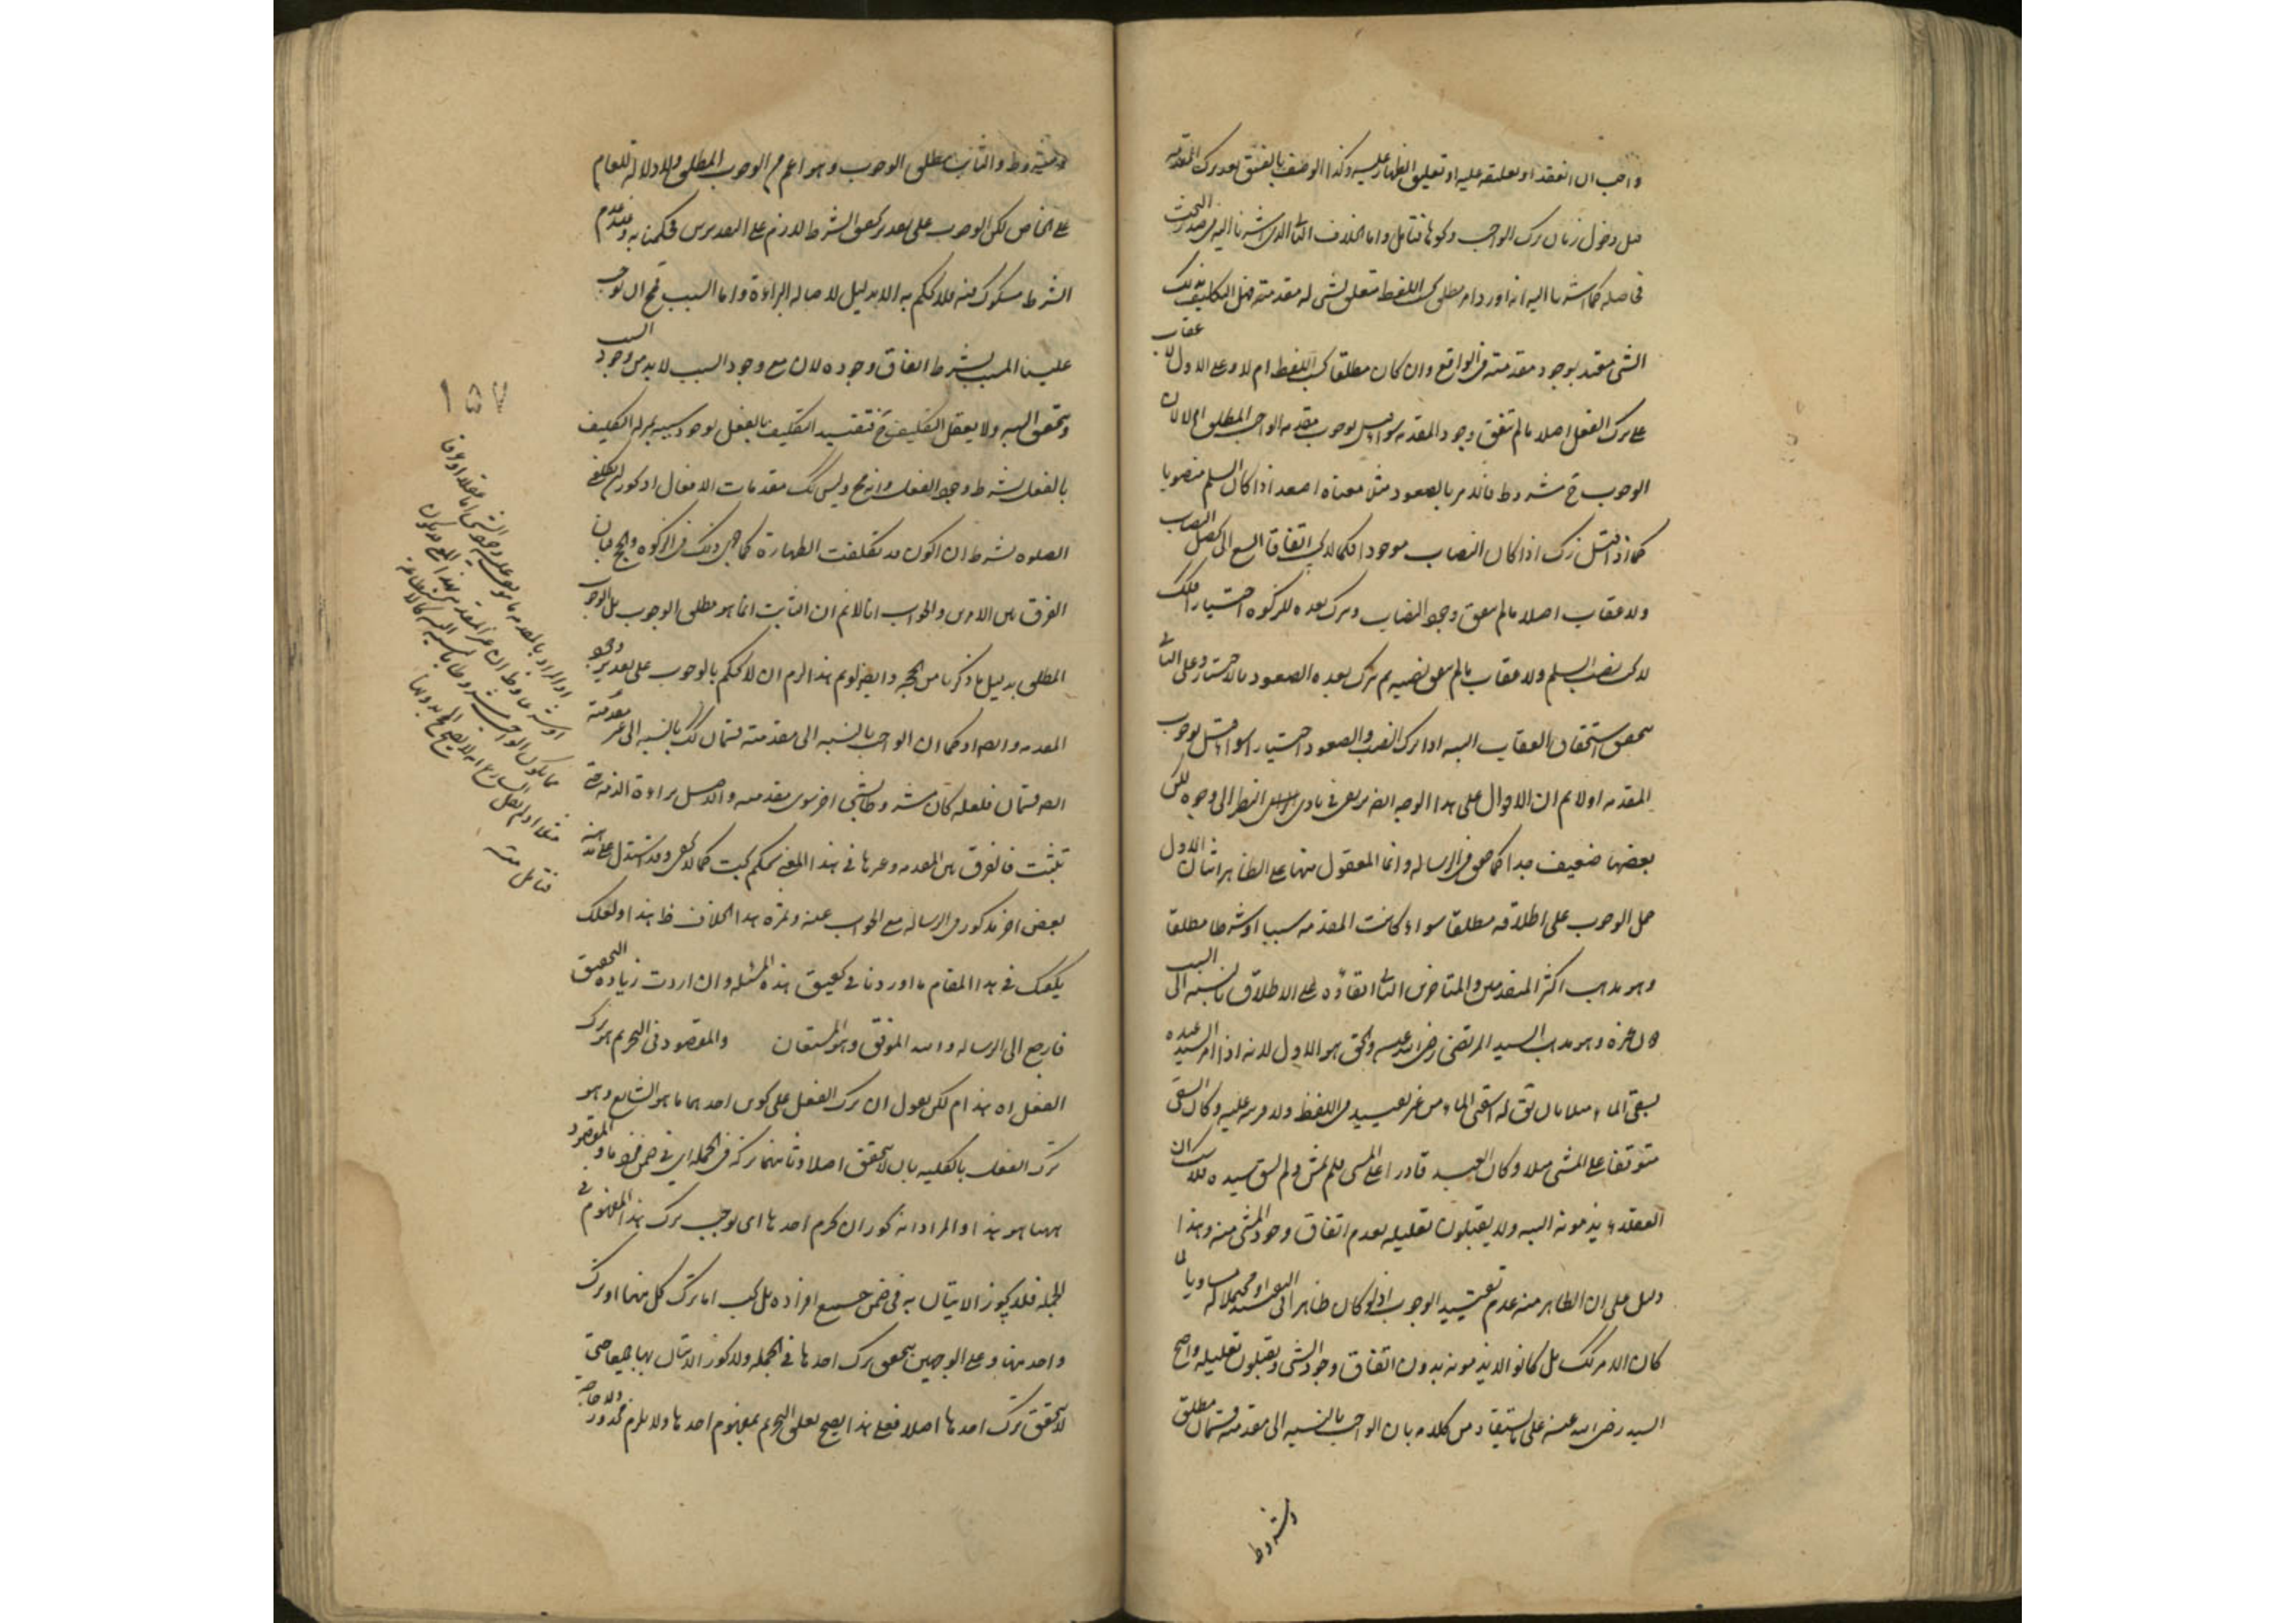 واجب ان انعقد او تعليقه عليه او تعليق الظهار عليه وكذا الوصف بالفسق بعد ترك المقدمة
قبل دخول زمان ترك الواجب ونحوها فتأمل واما الخلاف الثانى الذى اشرنا اليه فى صدر البحث
فحاصله كما اشرنا اليه انه اورد امر مطلق بحسب اللفظ متعلق بشى له مقدمة فهل التكليف بذلك
الشى مقيد بوجود مقدمته فى الواقع وان كان مطلقا بحسب اللفظ ام لا وعلى الاول لا عقاب
على ترك الفعل اصلا ما لم يتفق وجود المقدمة سواء قيل بوجوب مقدمة الواجب المطلق ام لا لان
الوجوب ح مشروط فالامر بالصعود مثلا معناه اصعد اذا كان السلم منصوبا
كما اذا قيل زك اذا كان النصاب موجودا فكما لا يجب اتفاقا السعى الى تحصيل النصاب
ولا عقاب اصلا ما لم يتفق وجود النصاب وترك بعده الزكوة اختيارا فكذلك
لا يجب نصب السلم ولا عقاب ما لم يتفق نصبه ثم ترك بعده الصعود بالاختيار وعلى الثانى
يتحقق استحقاق العقاب البتة اذا ترك النصب والصعود اختيارا سواء قيل بوجوب
المقدمة اولا ثم ان الاقوال على هذا الوجه ايضا يرتقى فى بادى النظر الى وجوه لكن
بعضها ضعيف جدا كما حقق فى الرسالة وانما المعقول منها على الظاهر اثنان الاول
حمل الوجوب على اطلاقه مطلقا سواء كانت المقدمة سببا او شرطا مطلقا
وهو مذهب اكثر المتقدمين والمتأخرين الثانى ابقاؤه على الاطلاق بالنسبة الى السبب
دون غيره وهو مذهب السيد المرتضى رضى الله عنه والحق هو الاول لانه اذا امر السيد عبده
بسقى الماء مثلا بان يق له اسقنى الماء من غير تقييد فى اللفظ ولا قرينة عليه وكان السقى
متوقفا على المشى مثلا وكان العبد قادرا على المشى فلم يمش ولم يسق سيده فلا شك ان
العقلاء يذمونه البتة ولا يقبلون تعليله بعدم اتفاق وجود المشى منه وهذا
دليل على ان الظاهر منه عدم تقييد الوجوب اذ لو كان ظاهرا فى التقييد او محتملا له مساويا لما
كان الامر كذلك بل كانوا لا يذمونه بدون اتفاق وجود المشى ويقبلون تعليله واحتج
السيد رضى الله عنه على ما يستفاد من كلامه بان الواجب بالنسبة الى مقدمته قسمان مطلق
ومشروط
ومشروط والثابت مطلق الوجوب وهو اعم من الوجوب المطلق ولا دلالة للعام
على الخاص لكن الوجوب على تقدير تحقق الشرط لازم على التقديرين فحكمنا به وعند عدم
الشرط مشكوك فيه فلا نحكم به الا بدليل لاصالة البراءة واما السبب فمح ان يوجب
علينا المسبب بشرط اتفاق وجوده لان مع وجود السبب لا بد من وجود المسبب
بالفعل بشرط وجود الفعل وانه مح وليس كذلك مقدمات الافعال اذ يجوز ان يكلفنى
الصلوة بشرط ان اكون قد تكلفت الطهارة كما جرى ذلك فى الزكوة والحج فبان
الفرق بين الامرين والجواب انا لا نم ان الثابت انما هو مطلق الوجوب بل الوجوب
المطلق بدليل ما ذكرنا من الحجة وايضا لو تم هذا لزم ان لا نحكم بالوجوب على تقدير وجود
المقدمة ايضا اذ كما ان الواجب بالنسبة الى مقدمته قسمان كذلك بالنسبة الى غير مقدمته
ايضا قسمان فلعله كان مشروطا بشى اخر سوى مقدمته والاصل براءة الذمة حتى
يثبت فالفرق بين المقدمة وغيرها فى هذا المعنى تحكم بحت كما لا يخفى وقد استدل على مذهبه
بعض اخر مذكور فى الرسالة مع الجواب عنه وثمرة هذا الخلاف ظ هذا ولعلك
يكفيك فى هذا المقام ما اوردنا فى تحقيق هذه المسئلة وان اردت زيادة التحقيق
فارجع الى الرسالة والله الموفق وهو المستعان والمقصود فى التحريم هو ترك
الفعل اه هذا لكن نقول ان ترك الفعل على نحوين احدهما ما هو الشايع وهو
ترك الفعل بالكلية بان لا يتحقق اصلا وثانيهما تركه فى الجملة اى فى ضمن فرد ما والمقصود
ههنا هو هذا والمراد انه يجوز ان تحريم احدها اى يوجب ترك هذا المفهوم فى
الجملة فلا يجوز الاتيان به فى ضمن جميع افراده بل يجب اما ترك كل منهما او ترك
واحد منها وعلى الوجهين يتحقق ترك احدها فى الجملة ولا يجوز الاتيان بها جميعا حتى
لا يتحقق ترك احدها اصلا فعلى هذا يصح تعلق التحريم بمفهوم احدها ولا يلزم محذور ولا حاجة
١٥٧
فتأمل منه